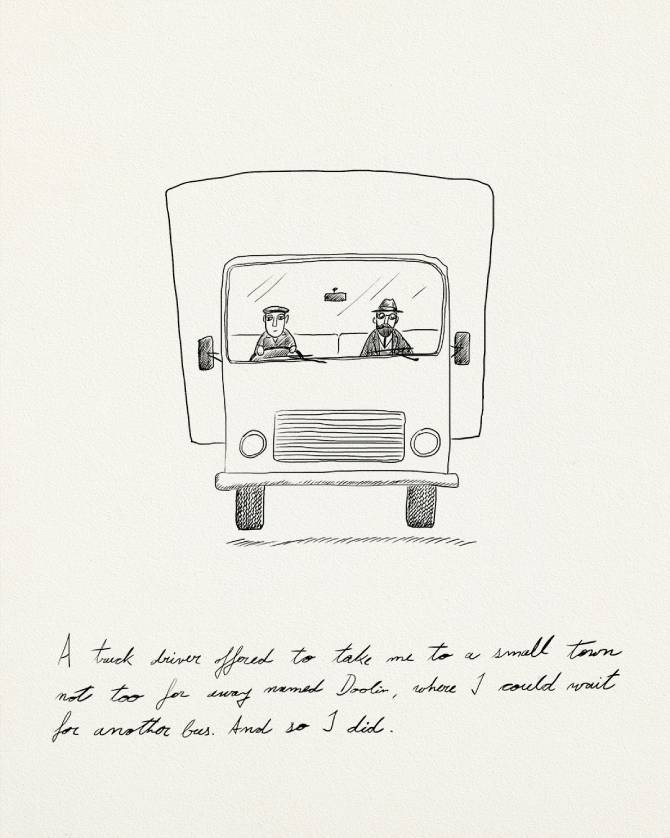 A truck driver offered to take me to a small town
not too far away named Doolin, where I could wait
for another bus. And so I did.